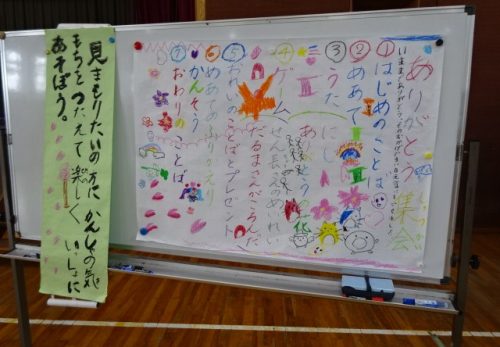 ありがとう集会
いままでありがとう。
①はじめのことば
②めあて
③うた にじ
ありがとうの花
④ゲーム せん長さんのめいれい
だるまさんがころんだ
⑤おれいのことばとプレゼント
⑥めあてのふりかえり
⑦かんそう
おわりのことば
見まもりたいの方に かんしゃの気
もちをつたえて楽しく いっしょに
あそぼう。